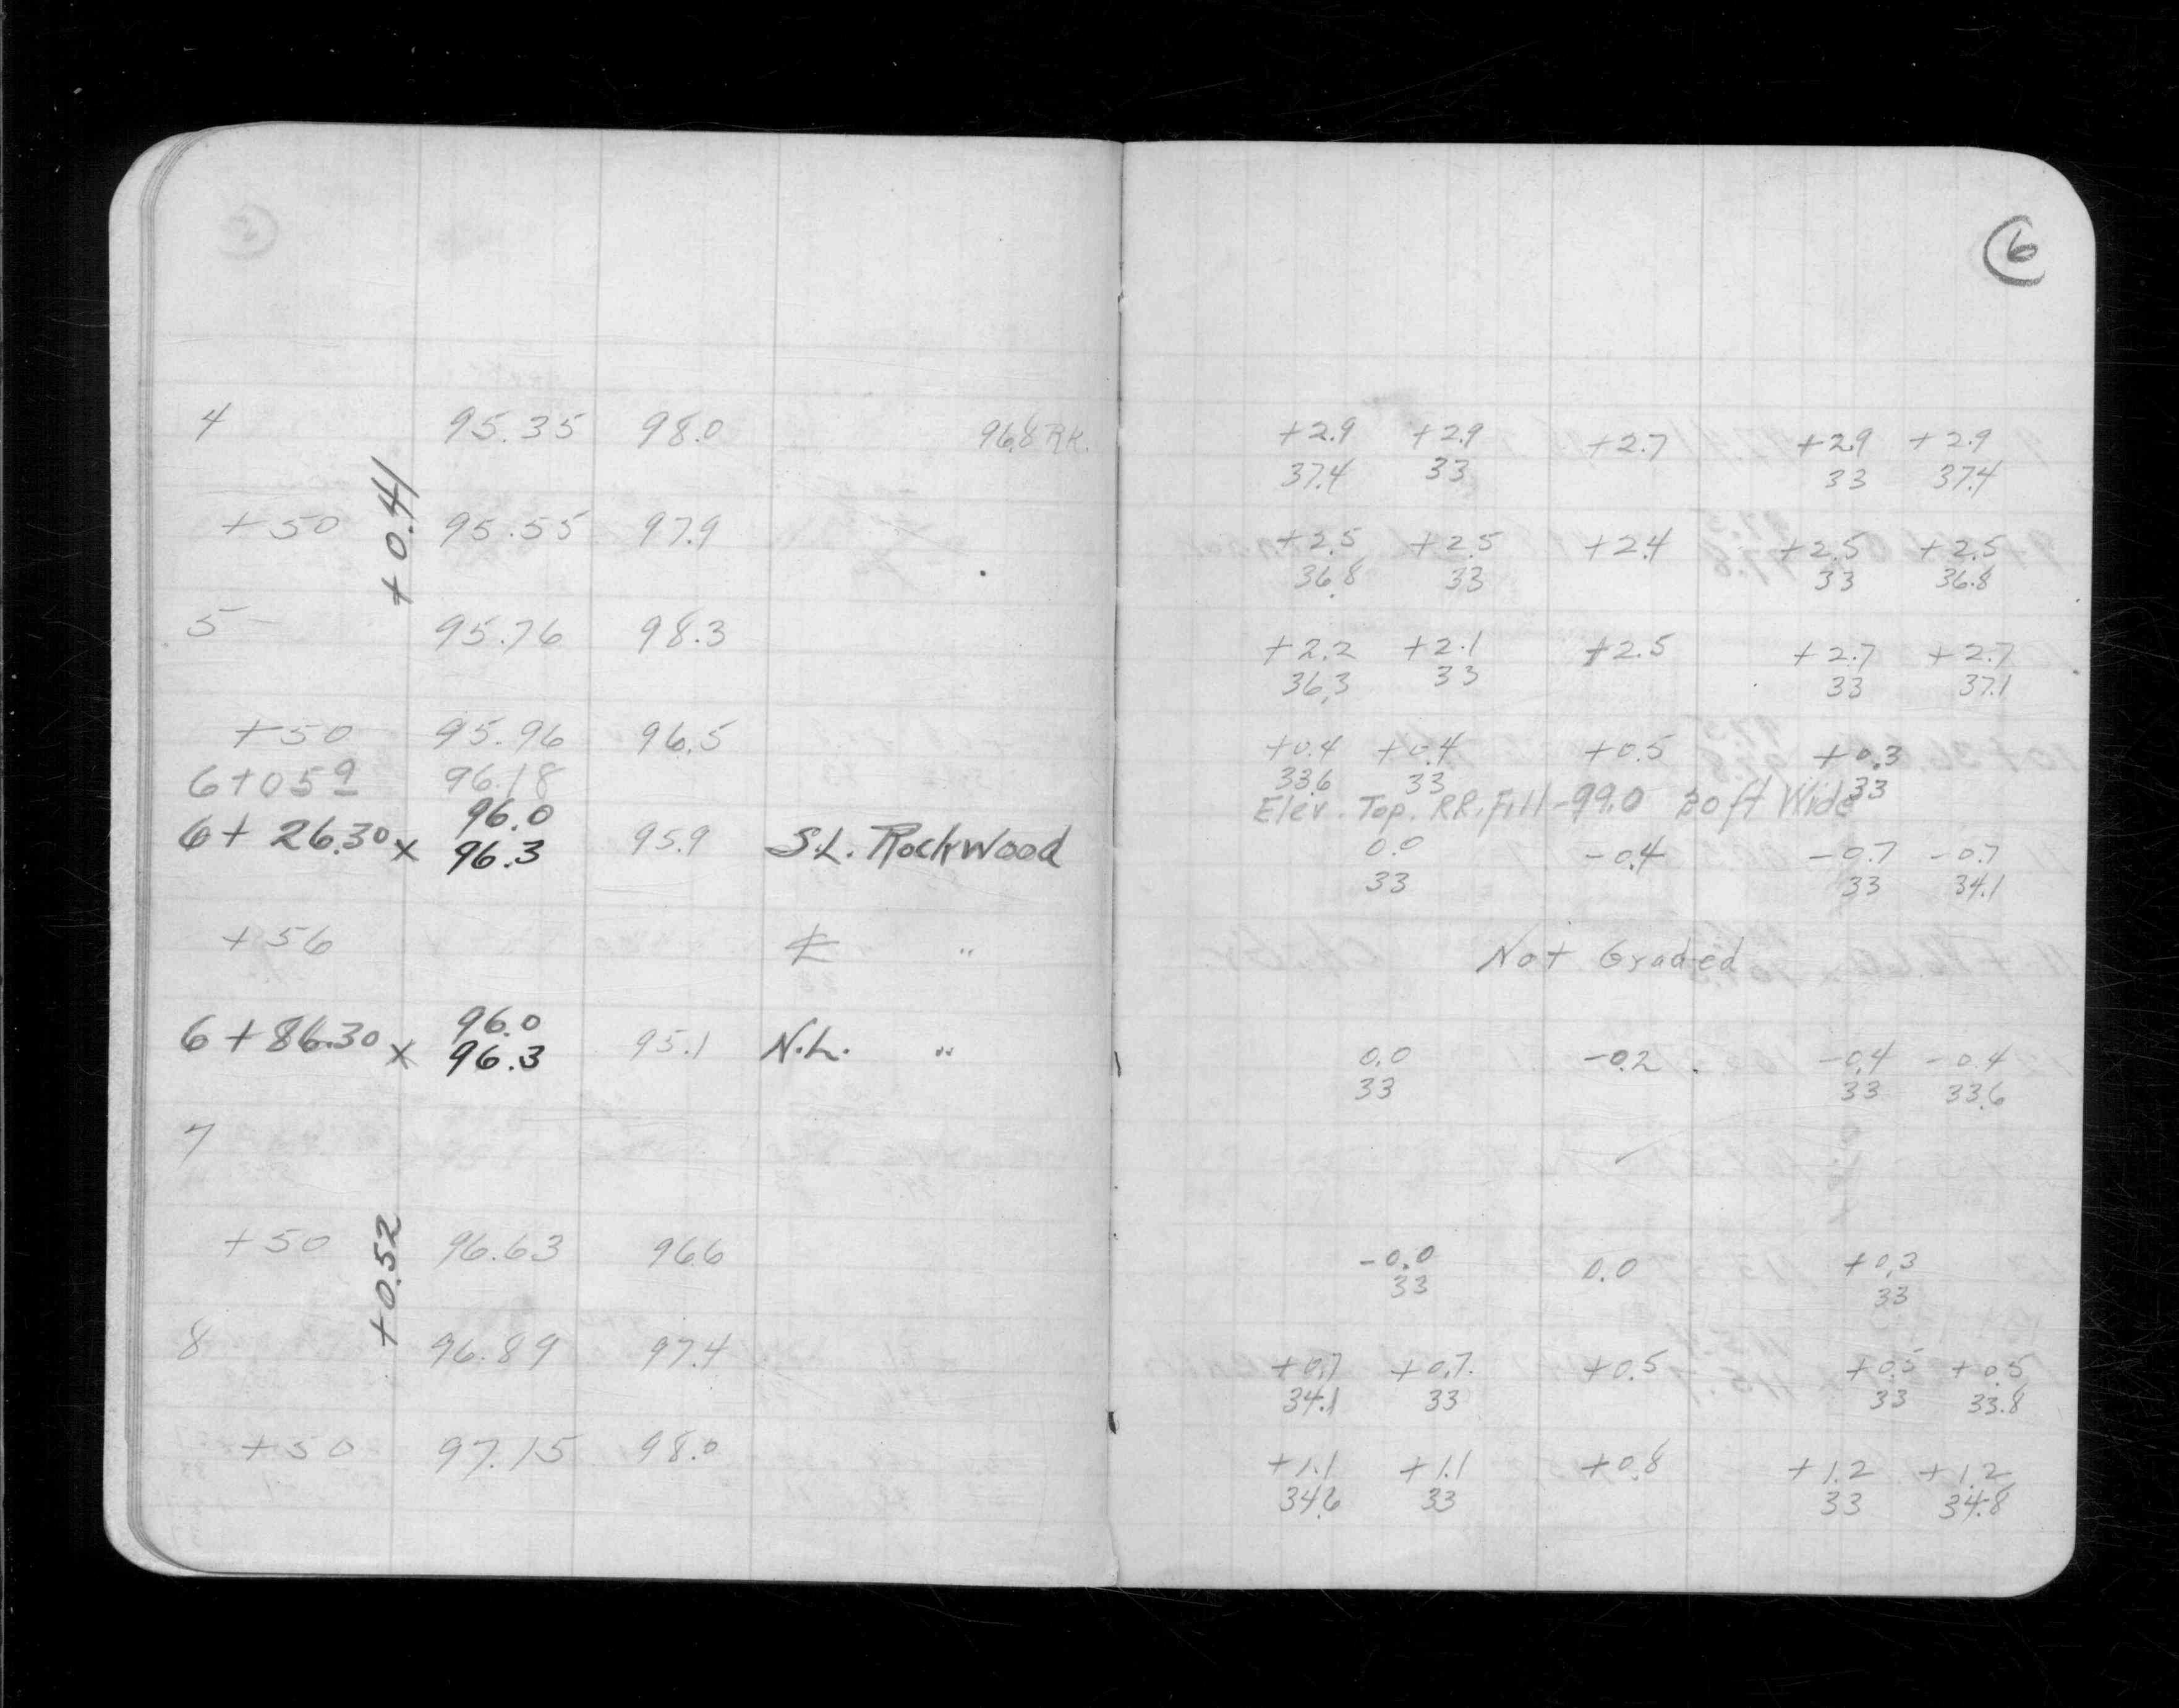 6
4 95.35 98.0 96.8 RK. +2.9 +2.9 +2.7 +2.9 +2.9
37.4 33 33 37.4
+0.41
+50 95.55 97.9 +2.5 +2.5 +2.4 +2.5 +2.5
36.8 33 33 36.8
5 95.76 98.3 +2.2 +2.1 +2.5 +2.7 +2.7
36.3 33 33 37.1
+50 95.96 96.5 +0.4 +0.4 +0.5 +0.3
33.6 33 33
6+059 96.18
Elev. Top. RR. Fill - 99.0 20 ft Wide
96.0
6+26.30 x 96.3 95.9 S.L. Rockwood 0.0 -0.4 -0.7 -0.7
33 33 34.1
+56 ℄ " Not Graded
96.0
6+86.30 x 96.3 95.1 N.L. " 0.0 -0.2 -0.4 -0.4
33 33 33.6
7
+0.52
+50 96.63 96.6 -0.0 0.0 +0.3
33 33
8 96.89 97.4 +0.7 +0.7 +0.5 +0.5 +0.5
34.1 33 33 33.8
+50 97.15 98.0 +1.1 +1.1 +0.8 +1.2 +1.2
34.6 33 33 34.8